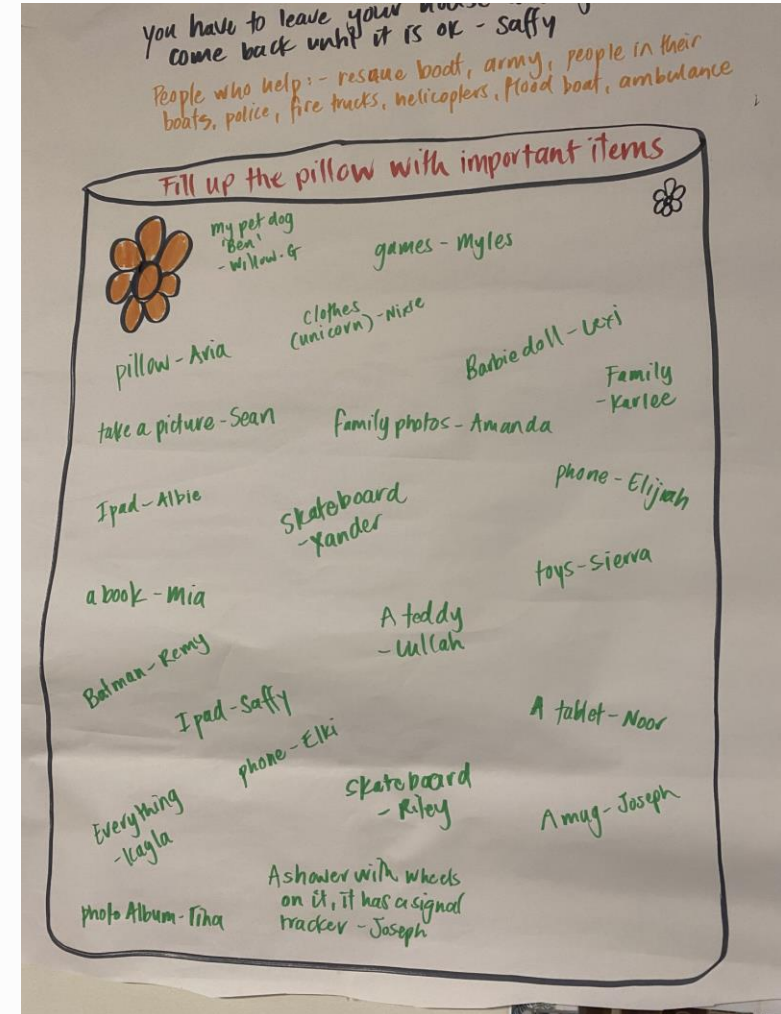 you have to leave your
come back until it is ok - Saffy
People who help:- resque boat, army, people in their
boats, police, fire trucks, helicopters, flood boat, ambulance
Fill up the pillow with important items
my pet dog
'Ben'
- Willow.G
games - Myles
clothes
(unicorn) - Nixie
pillow - Aria
Barbie doll - Lexi
Family
- Karlee
take a picture - Sean
family photos - Amanda
Ipad - Albie
Skateboard
- Xander
phone - Elijiah
toys - Sierra
a book - Mia
A teddy
Batman - Remy
Ipad - Saffy
A tablet - Noor
phone - Elki
Skateboard
- Riley
A mug - Joseph
Everything
- Kayla
A shower with wheels
on it, it has a signal
tracker - Joseph
photo Album - Tina